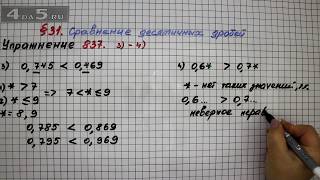 4DA5.RU
§31. Сравнение десятичных дробей
Упражнение 837. 3) - 4)
3) 0,745 < 0,469
4) 0,6* > 0,7*
*) * > 7
2) * ≤ 9
=> 7 < * ≤ 9
* = 8, 9
* - нет таких значений, т.к.
0,6... > 0,7...
неверное нерав
0,785 < 0,869
0,795 < 0,969